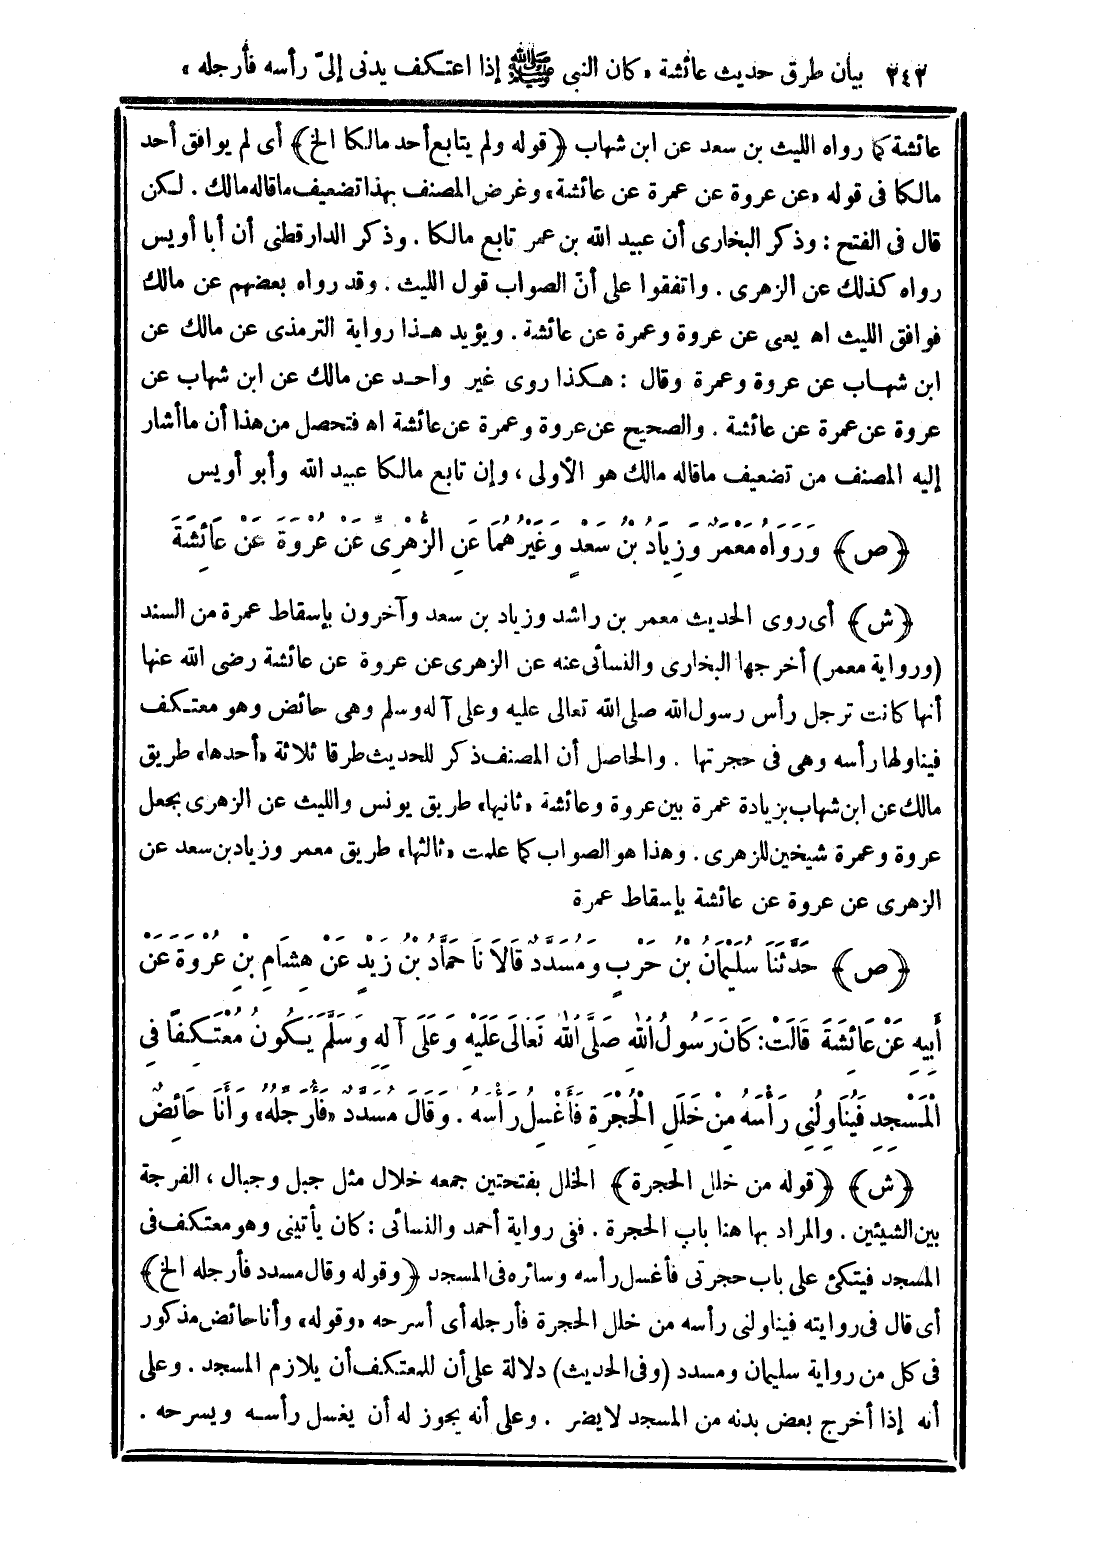 ٢٤٢ بيان طرق حديث عائشة «كان النبى ﷺ إذا اعتكف يدنى إلىّ رأسه فأرجله»
عائشة كما رواه الليث بن سعد عن ابن شهاب ﴿قوله ولم يتابع أحد مالكا الخ﴾ أى لم يوافق أحد
مالكا فى قوله «عن عروة عن عمرة عن عائشة» وغرض المصنف بهذا تضعيف ماقاله مالك . لكن
قال فى الفتح : وذكر البخارى أن عبيد الله بن عمر تابع مالكا . وذكر الدارقطنى أن أبا أويس
رواه كذلك عن الزهرى . واتفقوا على أنّ الصواب قول الليث . وقد رواه بعضهم عن مالك
فوافق الليث اه يعى عن عروة وعمرة عن عائشة . ويؤيد هـذا رواية الترمذى عن مالك عن
ابن شهـاب عن عروة وعمرة وقال : هـكذا روى غير واحـد عن مالك عن ابن شهاب عن
عروة عن عمرة عن عائشة . والصحيح عن عروة وعمرة عن عائشة اه فتحصل من هذا أن ماأشار
إليه المصنف من تضعيف ماقاله مالك هو الأولى ، وإن تابع مالكا عبيد الله وأبو أويس
﴿ص﴾ وَرَوَاهُ مَعْمَرٌ وَزِيَادُ بْنُ سَعْدٍ وَغَيْرُهُمَا عَنِ الزُّهْرِىِّ عَنْ عُرْوَةَ عَنْ عَائِشَةَ
﴿ش﴾ أى روى الحديث معمر بن راشد وزياد بن سعد وآخرون بإسقاط عمرة من السند
(ورواية معمر) أخرجها البخارى والنسائى عنه عن الزهرى عن عروة عن عائشة رضى الله عنها
أنها كانت ترجل رأس رسول الله صلى الله تعالى عليه وعلى آله وسلم وهى حائض وهو معتـكف
فيناولها رأسه وهى فى حجرتها . والحاصل أن المصنف ذكر للحديث طرقا ثلاثة «أحدها» طريق
مالك عن ابن شهاب بزيادة عمرة بين عروة وعائشة «ثانيها» طريق يونس والليث عن الزهرى بجعل
عروة وعمرة شيخين للزهرى . وهذا هو الصواب كما علمت «ثالثها» طريق معمر وزياد بن سعد عن
الزهرى عن عروة عن عائشة بإسقاط عمرة
﴿ص﴾ حَدَّثَنَا سُلَيْمَانُ بْنُ حَرْبٍ وَمُسَدَّدٌ قَالَا نَا حَمَّادُ بْنُ زَيْدٍ عَنْ هِشَامِ بْنِ عُرْوَةَ عَنْ
أَبِيهِ عَنْ عَائِشَةَ قَالَتْ: كَانَ رَسُولُ اللهِ صَلَّى اللهُ تَعَالَى عَلَيْهِ وَعَلَى آلِهِ وَسَلَّمَ يَكُونُ مُعْتَكِفًا فِى
الْمَسْجِدِ فَيُنَاوِلُنِى رَأْسَهُ مِنْ خَلَلِ الْحُجْرَةِ فَأَغْسِلُ رَأْسَهُ . وَقَالَ مُسَدَّدٌ «فَأُرَجِّلُهُ» وَأَنَا حَائِضٌ
﴿ش﴾ ﴿قوله من خلل الحجرة﴾ الخلل بفتحتين جمعه خلال مثل جبل وجبال ، الفرجة
بين الشيئين . والمراد بها هنا باب الحجرة . ففى رواية أحمد والنسائى : كان يأتينى وهو معتكف فى
المسجد فيتكئ على باب حجرتى فأغسل رأسه وسائره فى المسجد ﴿وقوله وقال مسدد فأرجله الخ﴾
أى قال فى روايته فيناولنى رأسه من خلل الحجرة فأرجله أى أسرحه «وقوله» وأنا حائض مذكور
فى كل من رواية سليمان ومسدد (وفى الحديث) دلالة على أن للمعتكف أن يلازم المسجد . وعلى
أنه إذا أخرج بعض بدنه من المسجد لا يضر . وعلى أنه يجوز له أن يغسل رأسـه ويسرحه .